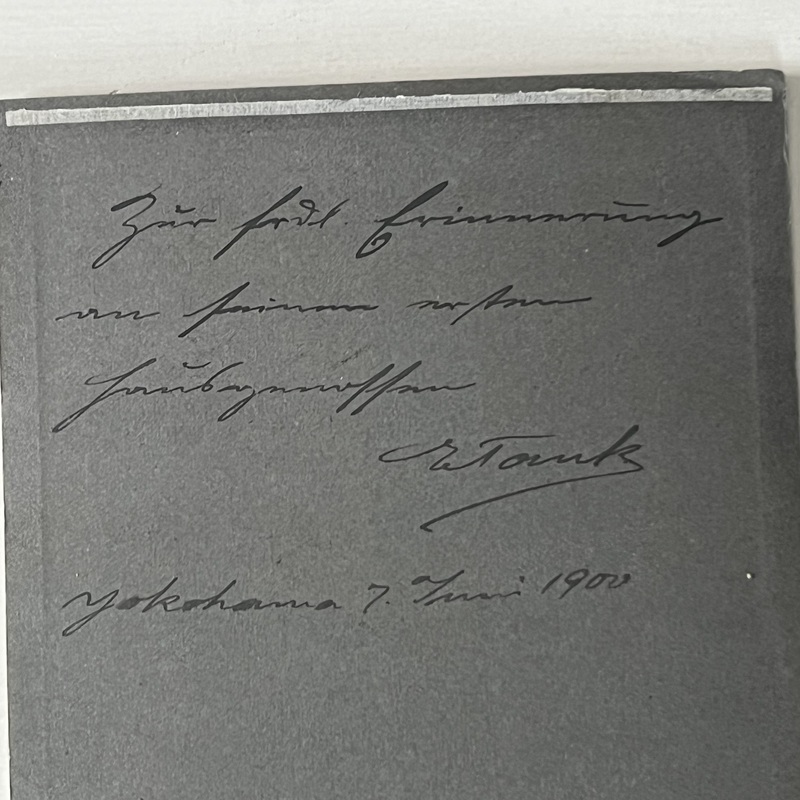 Zur frdl. Erinnerung
an seinen ersten
Hausgenossen
ETank
Yokohama 7. Juni 1900